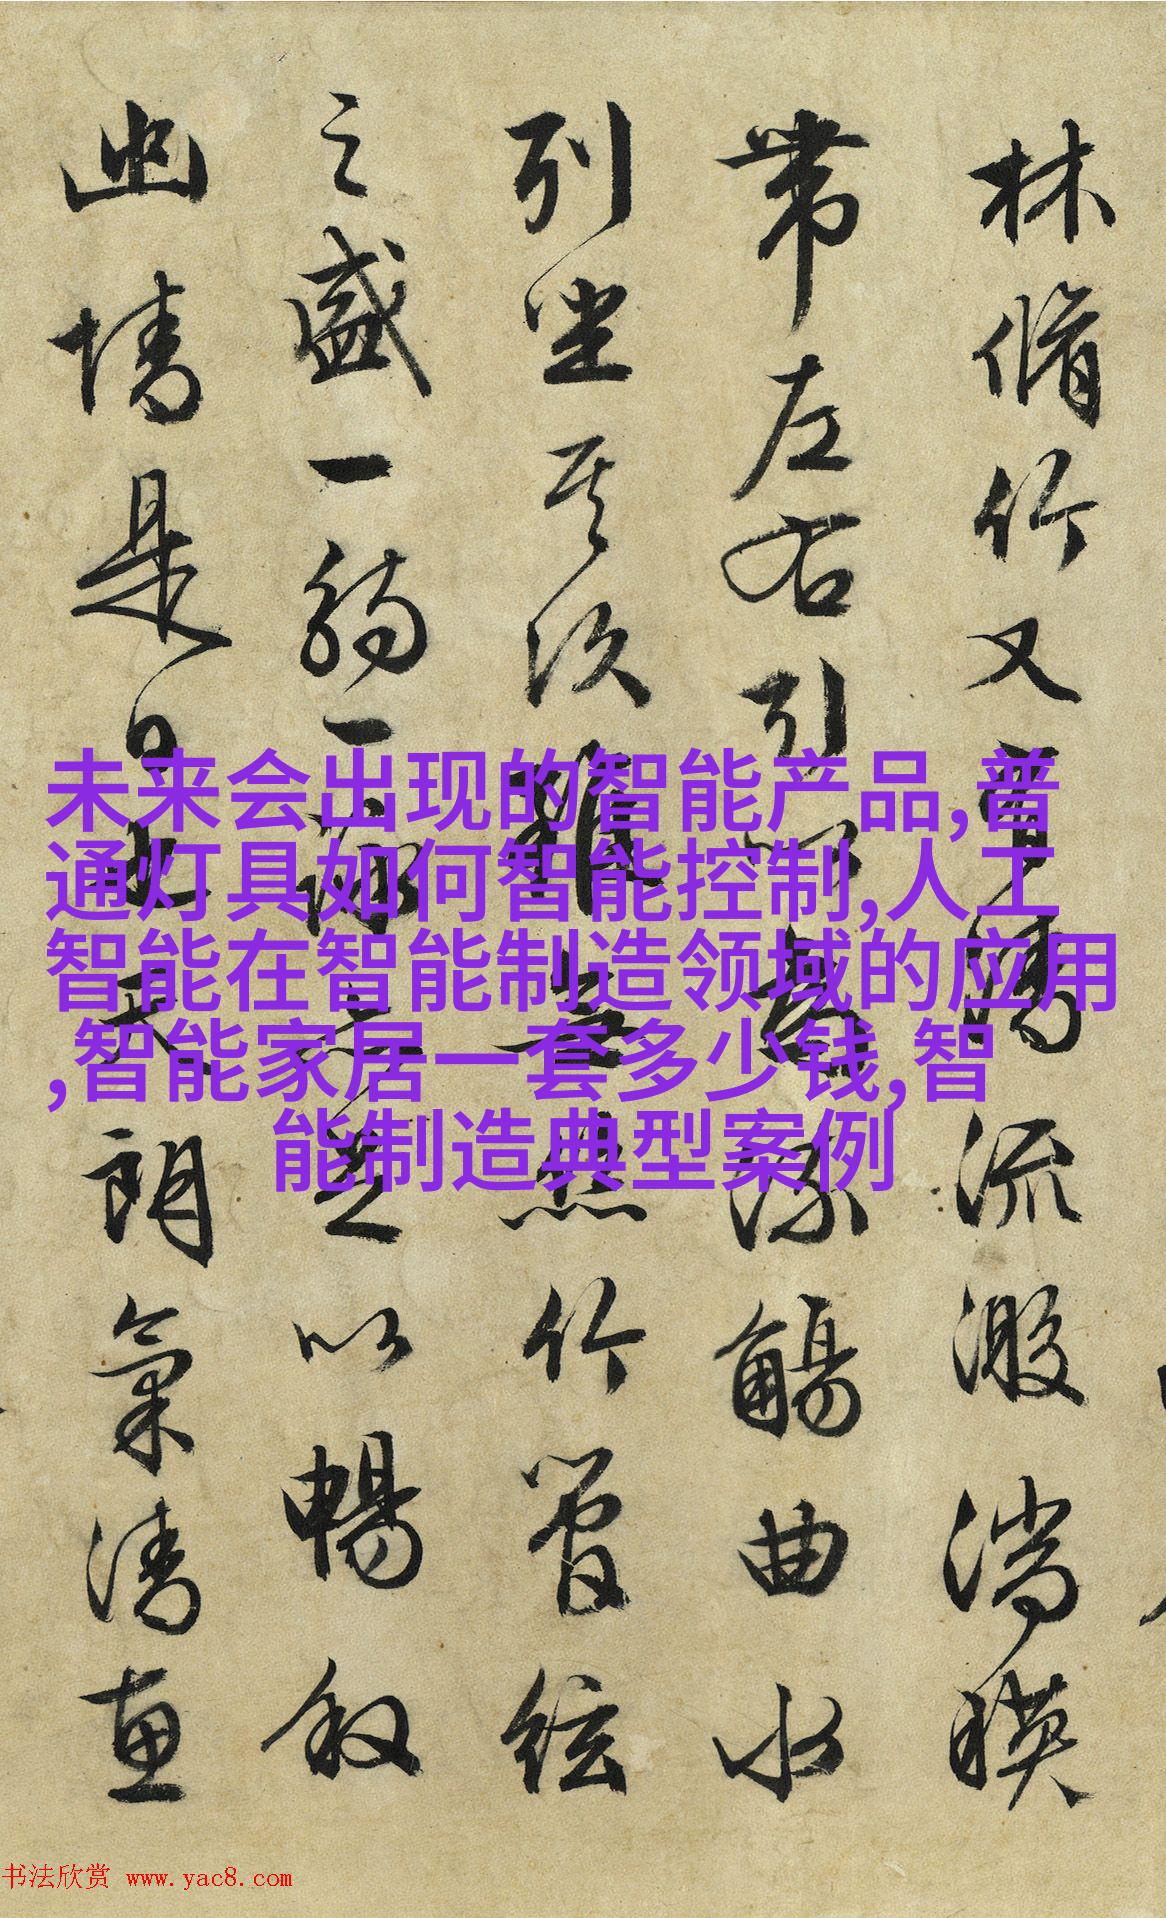 林脩竹又有清流激湍暎
帶左右引以為流觴曲水
列坐其次雖無絲竹管絃
之盛一觴一詠亦足以暢叙
幽情是日也天朗氣清惠
未来会出现的智能产品,普
通灯具如何智能控制,人工
智能在智能制造领域的应用
,智能家居一套多少钱,智
能制造典型案例
书法欣赏 www.yac8.com